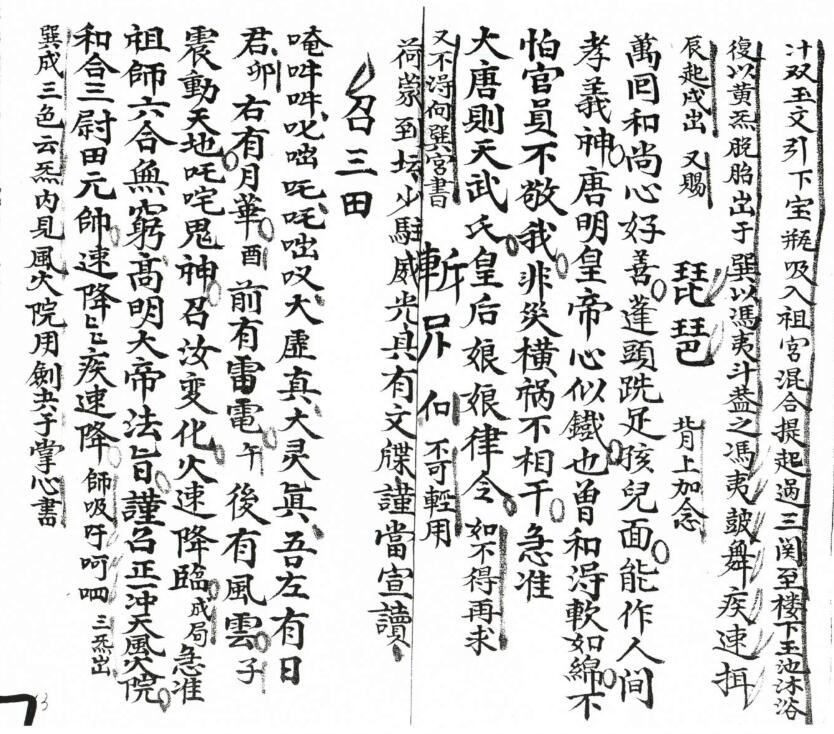 汁双玉文引下宝瓶吸入祖宮混合提起過三関至楼下玉池沐浴
復以黃炁脫胎出于巽以馮夷斗盖之馮夷鼓舞疾速揖
辰起戌出 又賜 琵琶 背上加念
萬囘和尚心好善蓬頭跣足孩兒面能作人间
孝義神唐明皇帝心似鐵也曾和淂軟如綿不
怕官員不敬我非災橫禍不相干急准
大唐則天武氏皇后娘娘律令 如不得再求
又不淂向巽宮書 斬 和 不可輕用
荷蒙到坛少駐威光具有文牒謹當宣讀
召三田
唵吽吽叱咄吒吒咄㕚大虛真大灵眞吾左有日
君卯 右有月華酉 前有雷電午 後有風雲子
震動天地吒咤鬼神召汝变化火速降臨 成局 急准
祖師六合無窮高明大帝法旨謹召正一冲天風火院
和合三尉田元帥速降ヒヒ疾速降 師吸吁呵呬 三炁出
巽成三色云炁内見風火院用劍共子掌心書
13